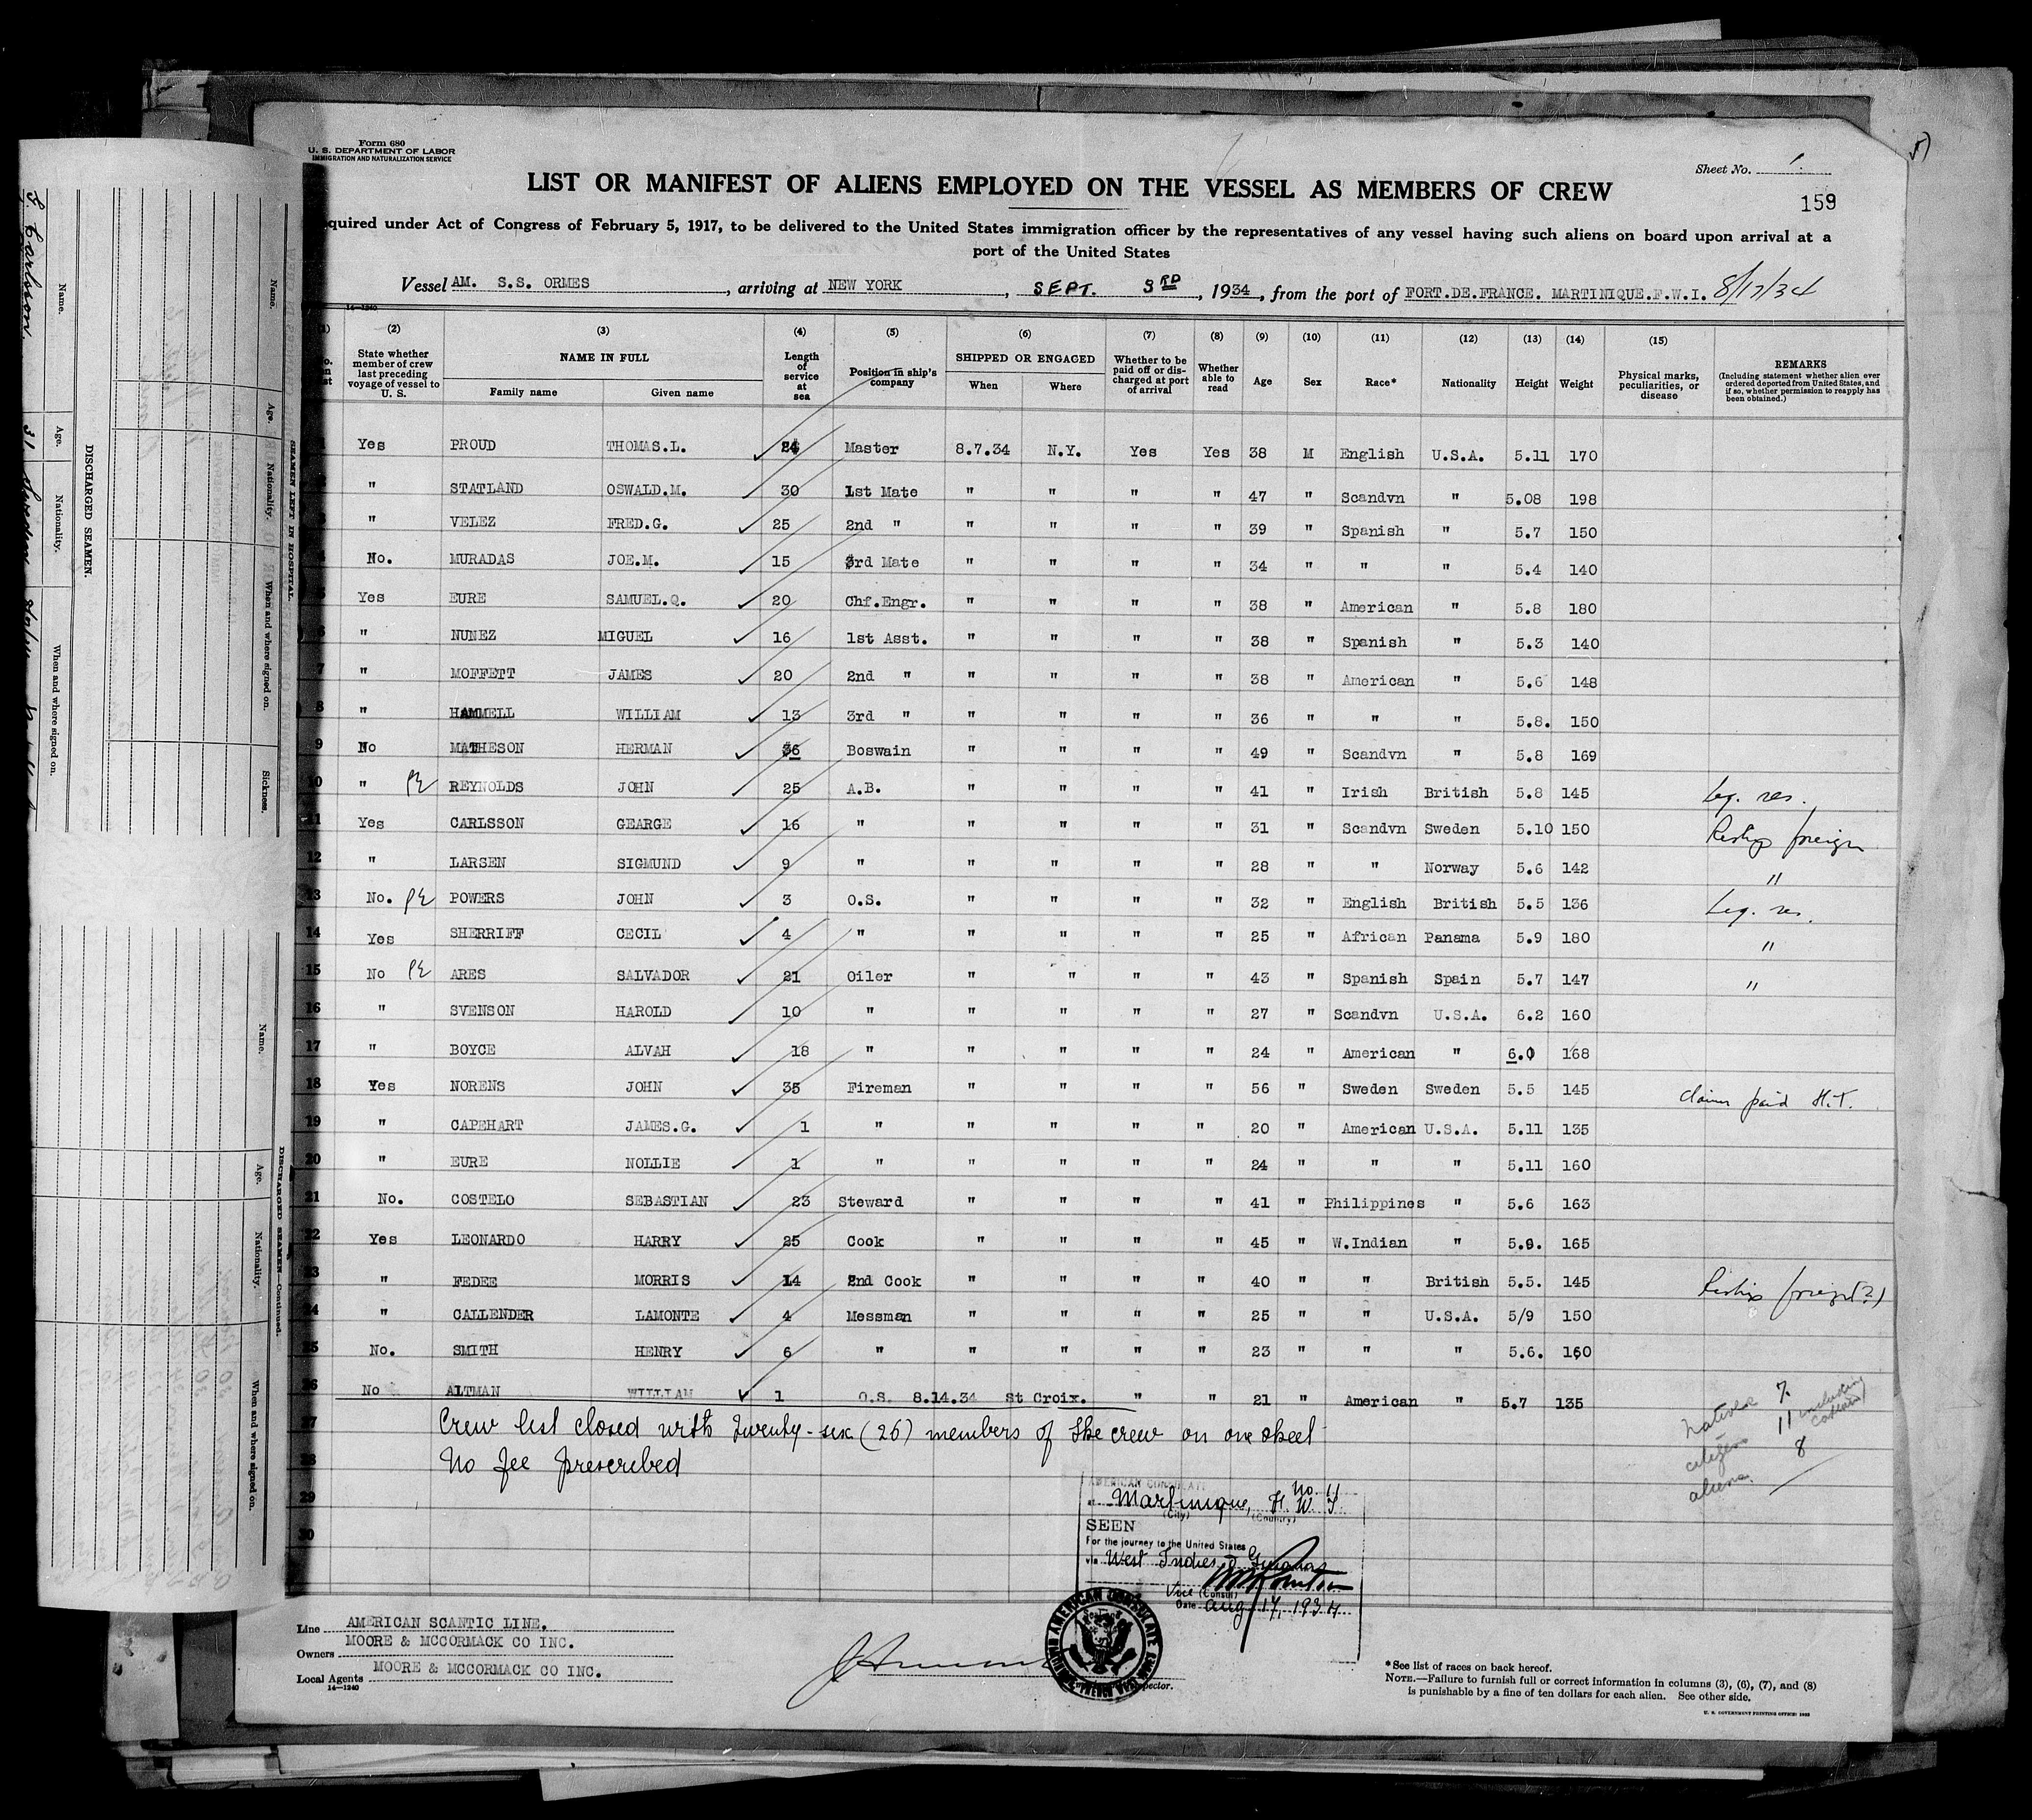 Form 680
U. S. DEPARTMENT OF LABOR
IMMIGRATION AND NATURALIZATION SERVICE
Sheet No. 1.
LIST OR MANIFEST OF ALIENS EMPLOYED ON THE VESSEL AS MEMBERS OF CREW
159
quired under Act of Congress of February 5, 1917, to be delivered to the United States immigration officer by the representatives of any vessel having such aliens on board upon arrival at a
port of the United States
Vessel AM. S.S. ORMES, arriving at NEW YORK, SEPT. 3RD, 1934, from the port of FORT.DE.FRANCE. MARTINIQUE.F.W.I. 8/17/34
14-1240
(2) (3) (4) (5) (6) (7) (8) (9) (10) (11) (12) (13) (14) (15)
State whether member of crew last preceding voyage of vessel to U. S.
NAME IN FULL
Family name Given name
Length of service at sea
Position in ship's company
SHIPPED OR ENGAGED
When Where
Whether to be paid off or discharged at port of arrival
Whether able to read
Age Sex Race* Nationality Height Weight
Physical marks, peculiarities, or disease
REMARKS
(Including statement whether alien ever ordered deported from United States, and if so, whether permission to reapply has been obtained.)
Yes PROUD THOMAS.L. 24 Master 8.7.34 N.Y. Yes Yes 38 M English U.S.A. 5.11 170
" STATLAND OSWALD.M. 30 1st Mate " " " " 47 " Scandvn " 5.08 198
" VELEZ FRED.G. 25 2nd " " " " " 39 " Spanish " 5.7 150
No. MURADAS JOE.M. 15 3rd Mate " " " " 34 " " " 5.4 140
Yes EURE SAMUEL.Q. 20 Chf.Engr. " " " " 38 " American " 5.8 180
6 " NUNEZ MIGUEL 16 1st Asst. " " " " 38 " Spanish " 5.3 140
7 " MOFFETT JAMES 20 2nd " " " " " 38 " American " 5.6 148
8 " HAMMELL WILLIAM 13 3rd " " " " " 36 " " " 5.8. 150
9 No MATHESON HERMAN 36 Boswain " " " " 49 " Scandvn " 5.8 169
10 " REYNOLDS JOHN 25 A.B. " " " " 41 " Irish British 5.8 145 Leg. res.
11 Yes CARLSSON GEARGE 16 " " " " " 31 " Scandvn Sweden 5.10 150 Reship foreign
12 " LARSEN SIGMUND 9 " " " " " 28 " " Norway 5.6 142 "
13 No. POWERS JOHN 3 O.S. " " " " 32 " English British 5.5 136 Leg. res.
14 Yes SHERRIFF CECIL 4 " " " " " 25 " African Panama 5.9 180 "
15 No ARES SALVADOR 21 Oiler " " " " 43 " Spanish Spain 5.7 147 "
16 " SVENSON HAROLD 10 " " " " " 27 " Scandvn U.S.A. 6.2 160
17 " BOYCE ALVAH 18 " " " " " 24 " American " 6.0 168
18 Yes NORENS JOHN 35 Fireman " " " " 56 " Sweden Sweden 5.5 145 claims paid H.T.
19 " CAPEHART JAMES.G. 1 " " " " " 20 " American U.S.A. 5.11 135
20 " EURE NOLLIE 1 " " " " " 24 " " " 5.11 160
21 No. COSTELO SEBASTIAN 23 Steward " " " " 41 " Philippines " 5.6 163
22 Yes LEONARDO HARRY 25 Cook " " " " 45 " W.Indian " 5.9. 165
23 " FEDEE MORRIS 14 2nd Cook " " " " 40 " " British 5.5. 145 Reship foreign(?)
24 " CALLENDER LAMONTE 4 Messman " " " " 25 " " U.S.A. 5/9 150
25 No. SMITH HENRY 6 " " " " " 23 " " " 5.6. 160
26 No ALTMAN WILLIAM 1 O.S. 8.14.34 St Croix. " " 21 " American " 5.7 135
27 Crew list closed with twenty-six (26) members of the crew on one sheet
28 No fee prescribed
29
30
natives 7
citizens 11 including captain)
aliens 8
AMERICAN CONSULATE
No. 11
at Martinique, F. W. I.
(City) (Country)
SEEN
For the journey to the United States
via West Indies & Guianas
Vice (Consul)
Date Aug 17, 1934
AMERICAN CONSULATE
Line AMERICAN SCANTIC LINE.
Owners MOORE & MCCORMACK CO INC.
Local Agents MOORE & MCCORMACK CO INC.
14-1240
*See list of races on back hereof.
NOTE.—Failure to furnish full or correct information in columns (3), (6), (7), and (8)
is punishable by a fine of ten dollars for each alien. See other side.
U. S. GOVERNMENT PRINTING OFFICE: 1932
SEAMEN LEFT IN HOSPITAL.
Name. Age. Nationality. When and where signed on. Sickness.
DISCHARGED SEAMEN.
Name. Age. Nationality. When and where signed on.
G. Carlsson. 31 Sweden
DISCHARGED SEAMEN—Continued.
Name. Age. Nationality. When and where signed on.